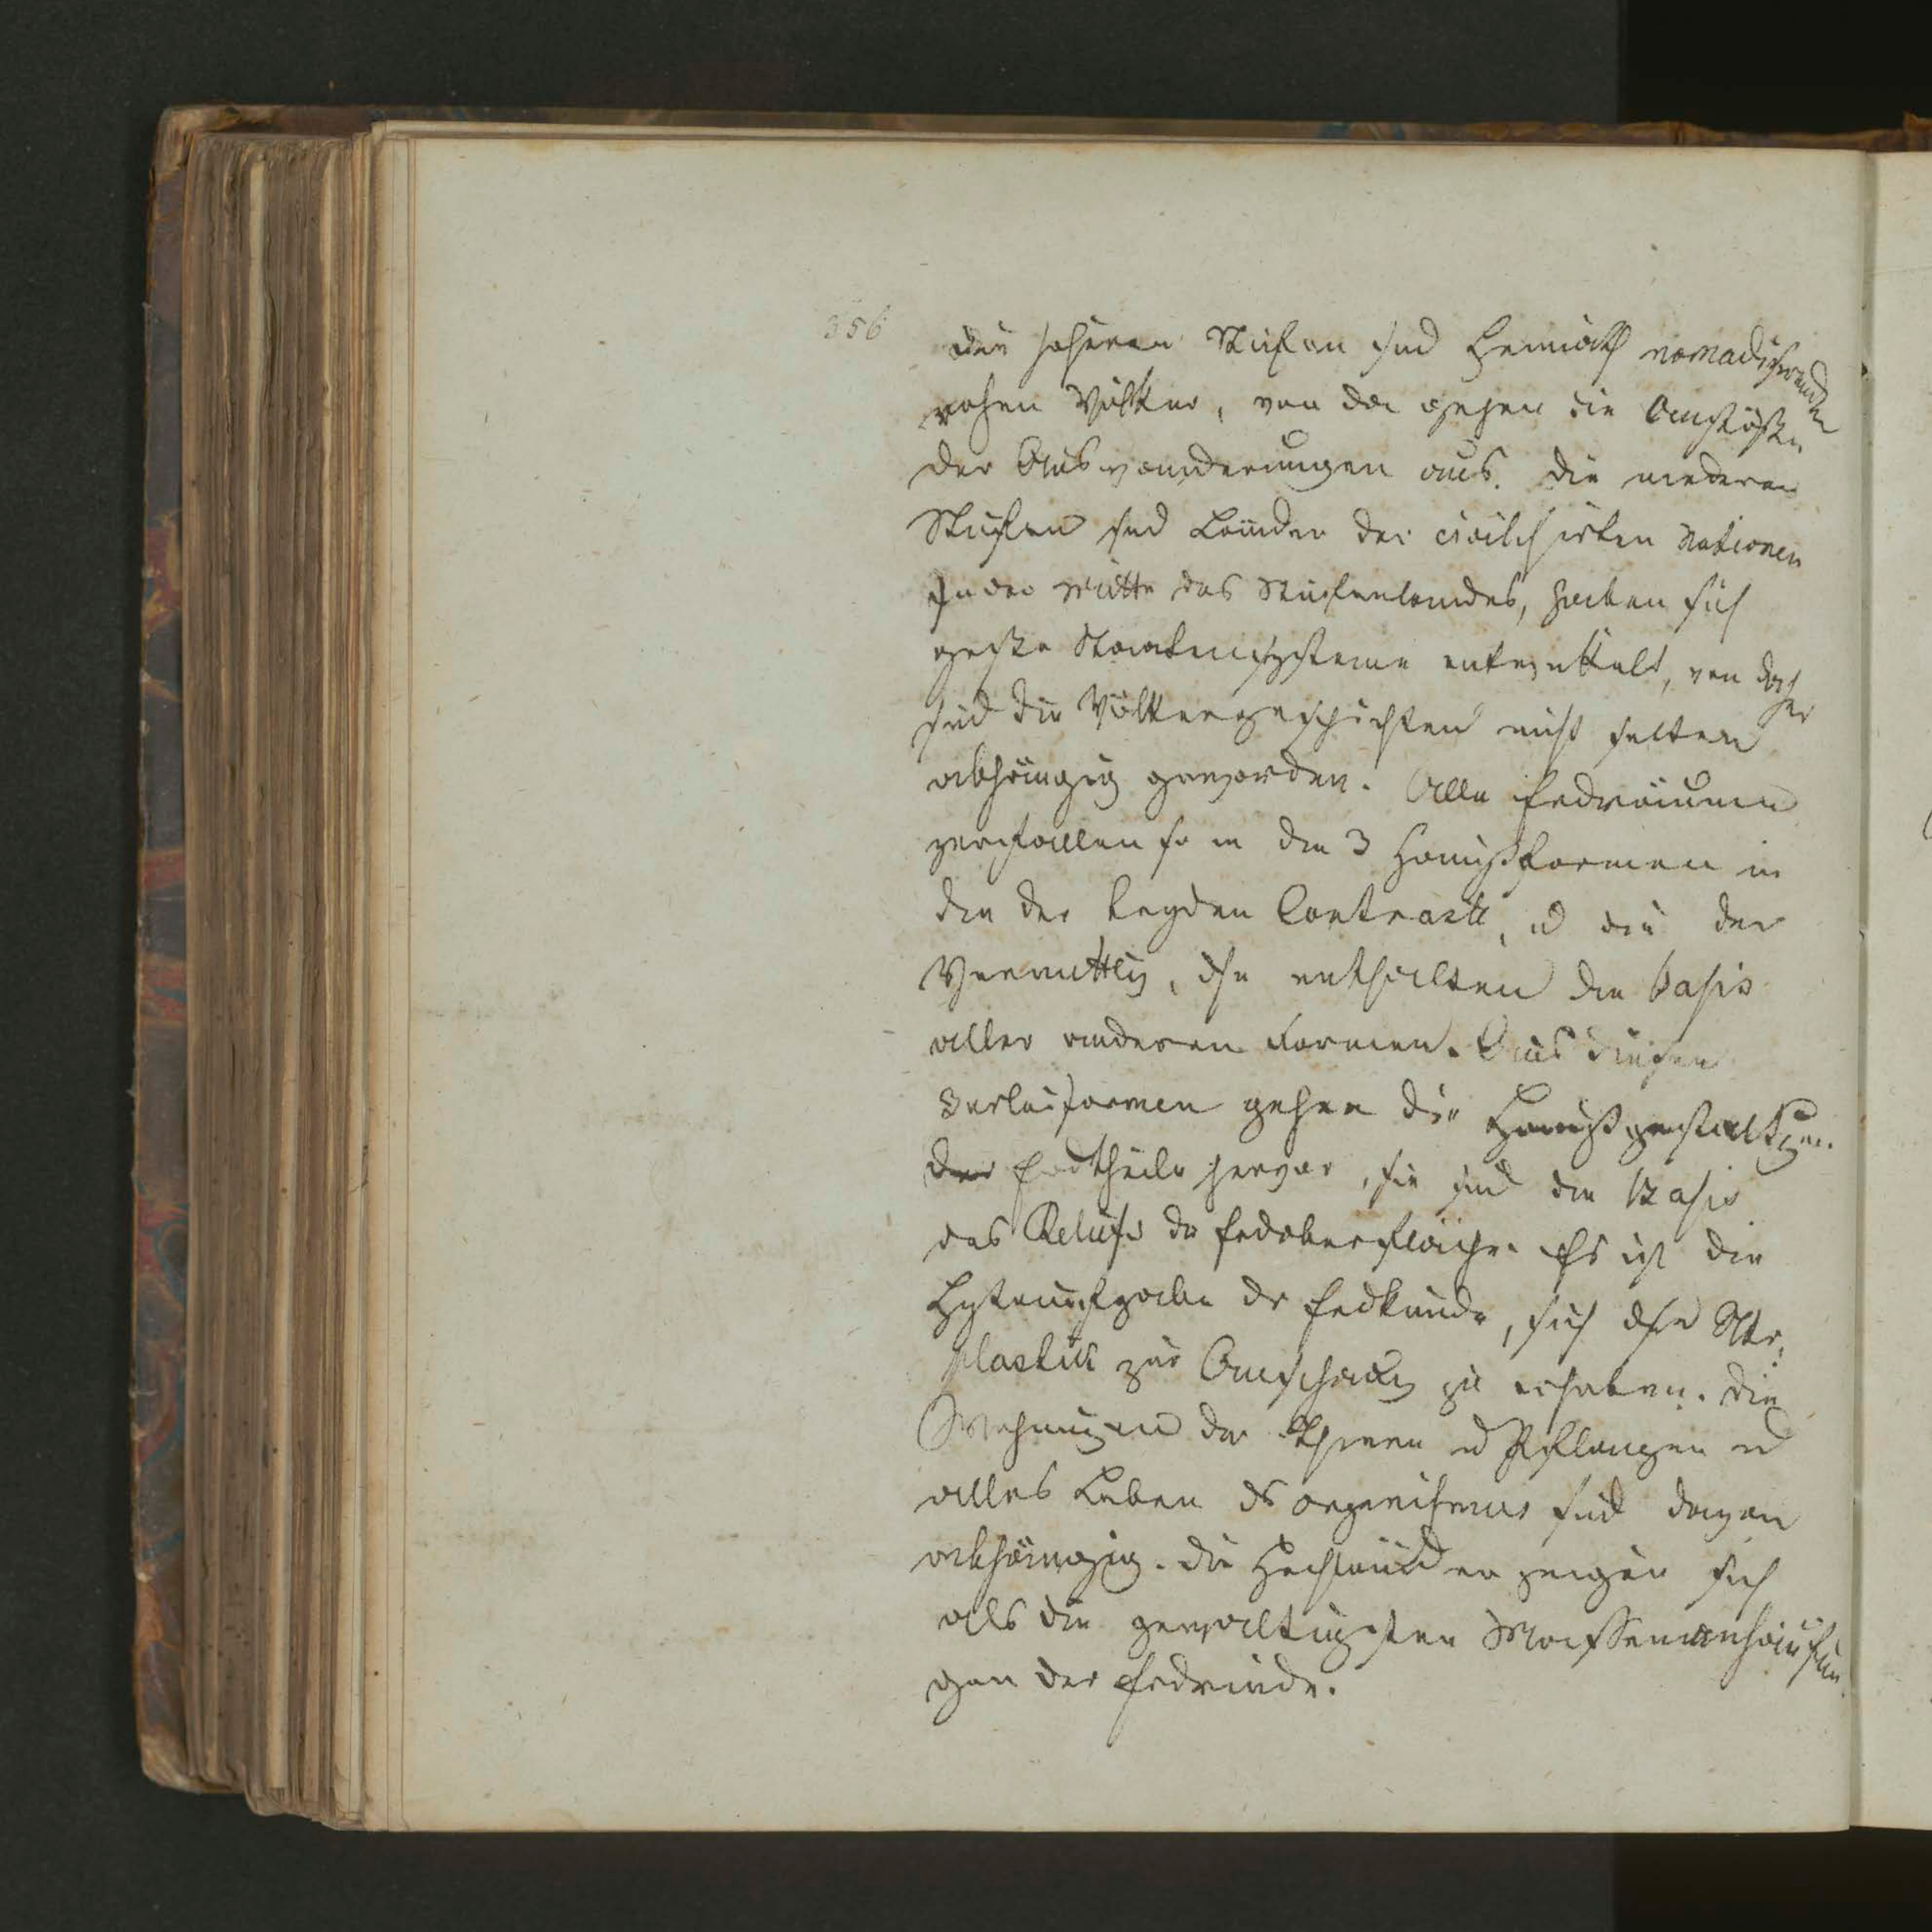 356
die höheren Stufen sind Heimath nomadisirender
rohen Völker, von da gehen die Anstöße
der Auswanderungen aus. Die niederen
Stufen sind Länder der civilisirten Nationen
In der Mitte des Stufenlandes, haben sich
große Staatensysteme entwickelt, von daher
sind die Völkergeschichten nicht selten
abhängig geworden. Alle Erdräume
zerfallen so in die 3 Hauptformen in
die der beyden Contraste, u die der
Vermittlg, dse enthalten die Basis
aller anderen Formen. Aus diesen
3erlei Formen gehen die Hauptgestaltgen
der Erdtheile hervor, sie sind die Basis
des Reliefs der Erdoberfläche. Es ist die
Hptaufgabe dr Erdkunde, sich dse
plastik zur Anschaug zu erheben. Die
Wohnungen der Thiere ud Pflanzen ud
alles Leben ds Organismus sind davon
abhängig. Die Hochländer zeigen sich
als die gewaltigsten Massenanhäufun
gen der Erdrinde.